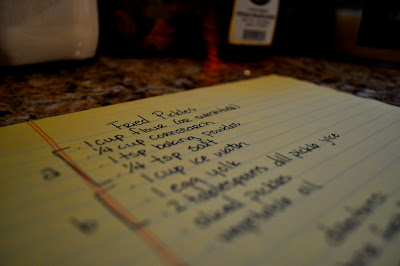 Fried Pickles
1 cup flour (or substitute)
1/4 cup cornstarch
1 tsp baking powder
1/4 tsp salt
1 cup ice water
1 egg yolk
2 tablespoons dill pickle juice
sliced pickles
vegetable oil
a
b